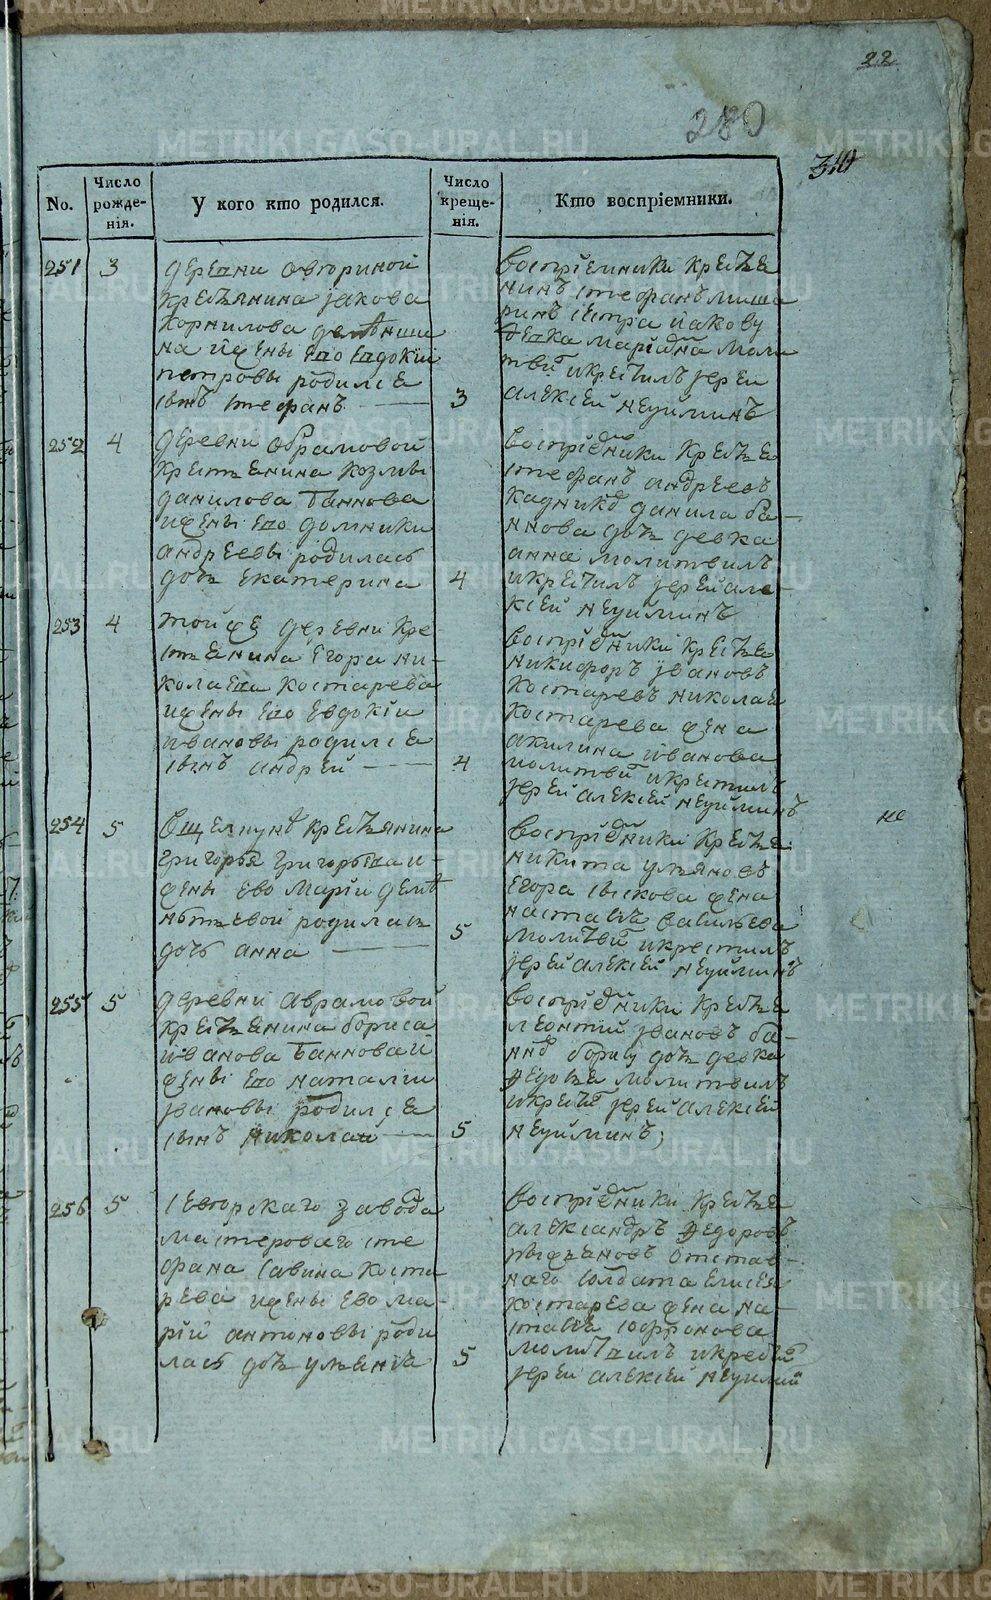 22
280
310
No.
Число рожде-
нія.
У кого кто родился.
Число
креще-
нія.
Кто воспріемники.
251
3
деревни овториной
крестьянина јакова
корнилова
на ижены ево евдокіи
петровы родился
сынъ стефанъ
3
воспріемники кресья
нинъ стефанъ миша
ринъ сестра иакову
девка марія
и крестилъ јерей
алексіей неуиминъ
252
4
деревни обрамовой
крестьянина козмы
данилова баннова
ижены ево домники
андреевы родилась
дочь екатерина
4
воспріемники кресья
стефанъ андреевъ
данила ба-
ннова дочь девка
анна молитвилъ
и крестилъ јерей але-
ксіей неуиминъ
253
4
тойже деревни кре-
стьянина егора ни-
колаева костарева
ижены ево евдокіи
ивановы родился
сынъ андрей
4
воспріемники кресья
никифоръ јвановъ
костаревъ николая
костарева жена
акилина иванова
молитвил и крестилъ
јерей алексіей неуиминъ
254
5
вщелкунѣ крестьянина
григорья григорьева и-
жены ево маріи
родилась
дочь анна
5
воспріемники кресья
никита ульяновъ
егора сыскова жена
настасья васильева
молитвил и крестилъ
јерей алексіей неуиминъ
не
255
5
деревни аврамовой
крестьянина бориса
иванова баннова и
жены ево наталіи
јвановы родился
сынъ николай
5
воспріемники кресья
леонтий јвановъ ба-
нно борису дочь девка
федосья молитвилъ
и крестил јерей алексіей
неуиминъ;
256
5
севѣрскаго завода
мастероваго сте
фана савина коста
рева ижены ево ма-
рии антоновы роди
лась дочь ульянія
5
воспріемники кресья
александръ федоровъ
отстав-
наго солдата елисея
костарева жена на-
стасья софронова
молитвилъ и крестил
јерей алексіей неуимин